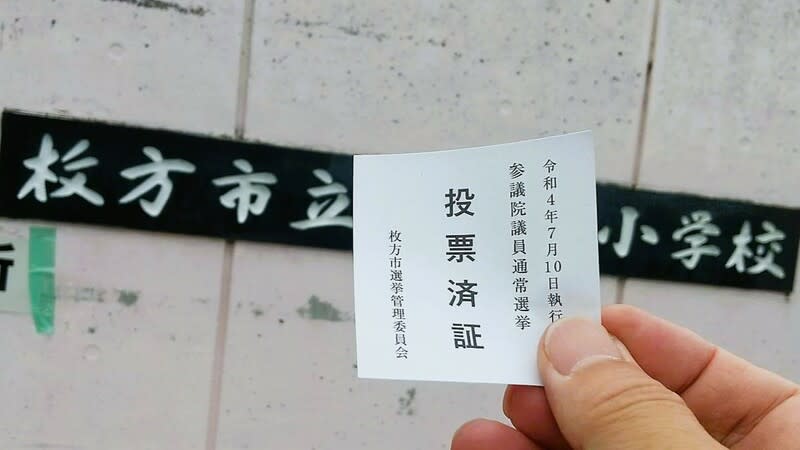 枚方市立
小学校
令和4年7月10日執行
参議院議員通常選挙
投票済証
枚方市選挙管理委員会
所